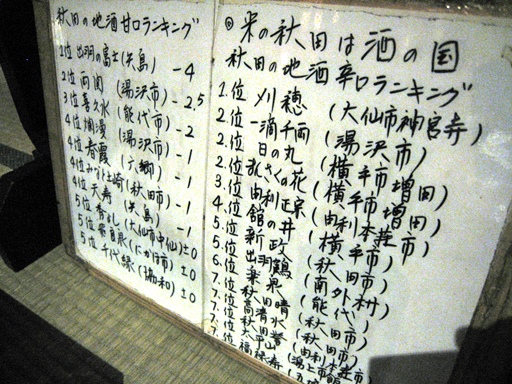 秋田の地酒甘口ランキング
1位 出羽の富士(矢島) -4
2位 両関 (湯沢市) -2.5
3位 喜久水 (能代市) -2
4位 爛漫 (湯沢市) -1
4位 春霞 (六郷) -1
4位 (秋田市) -1
4位 天寿 (矢島) -1
5位 (大仙市中仙) ±0
5位 (にかほ市) ±0
5位 千代緑 (協和) ±0
◎ 米の秋田は酒の国
秋田の地酒辛口ランキング
1.位 刈穂 (大仙市神宮寺)
2.位 一滴千両 (湯沢市)
2.位 日の丸 (横手市増田)
2.位 まんさくの花 (横手市増田)
3.位 由利正宗 (由利本荘市)
4.位 館の井 (横手市)
5.位 新政 (秋田市)
6.位 出羽鶴 (南外村)
7.位 (能代)
7.位 秋田晴 (秋田市)
7.位 高清水 (秋田市)
7.位 (由利本荘市
7.位 太平山 (潟上市
7.位 福禄寿